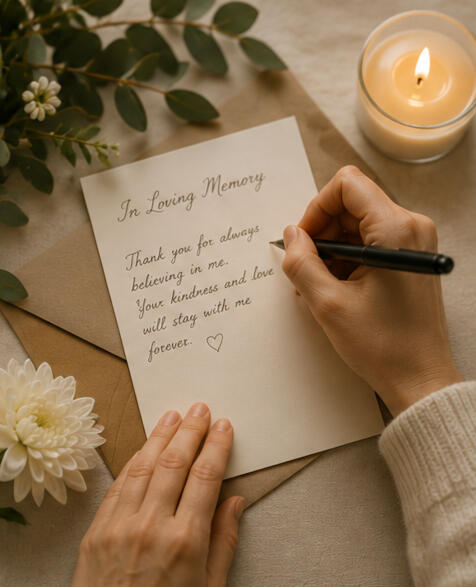 In Loving Memory
Thank you for always
believing in me.
Your kindness and love
will stay with me
forever. ♡